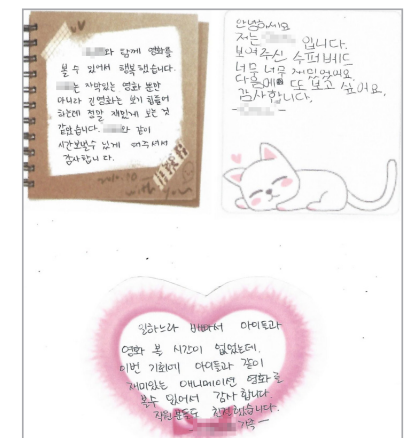 와 함께 영화를
볼 수 있어서 행복했습니다.
는 자막있는 영화 뿐만
아니라 긴영화는 보기 힘들어
하는데 정말 재밌게 보는 것
같았습니다. 와 같이
시간보낼수 있게 해주셔서
감사합니다.
with you
안녕하세요
저는 입니다.
보여주신 수퍼배드
너무 너무 재밌었어요.
다음에 또 보고 싶어요.
감사합니다.
일하느라 바빠서 아이들과
영화 볼 시간이 없었는데,
이번 기회에 아이들과 같이
재미있는 애니메이션 영화로
볼수 있어서 감사합니다.
직원분들도 친절했습니다.
가족-